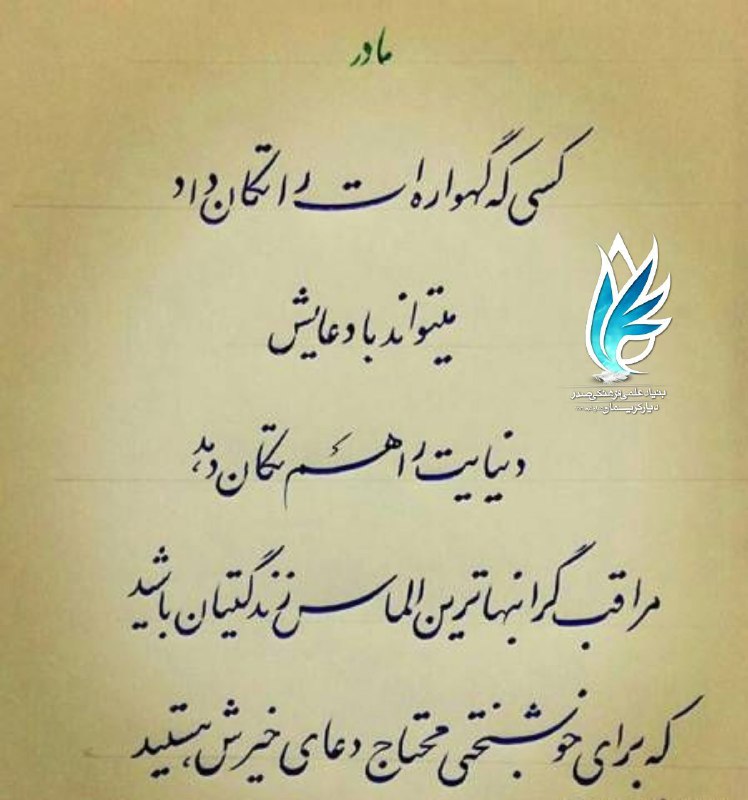 مادر
کسی که گهواره ات را تکان داد
میتواند با دعایش
دنیایت را هم تکان دهد
مراقب گرانبهاترین الماس زندگیتان باشید
که برای خوشبختی محتاج دعای خیرش هستید
بنیاد علمی فرهنگی صدر
دیار کریمان